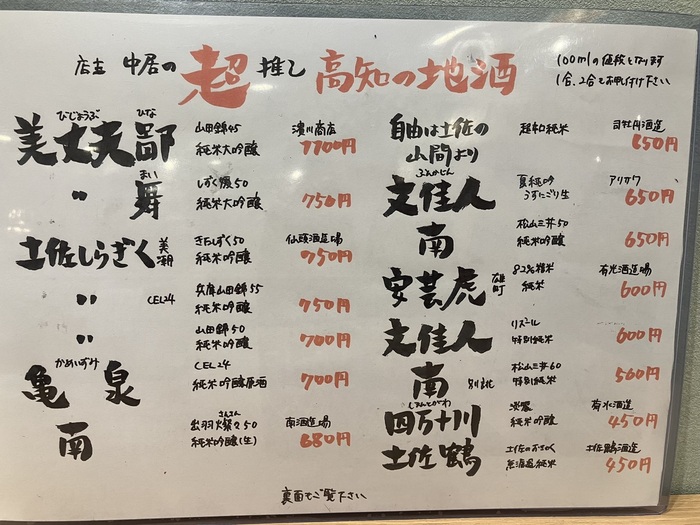 店主 中居の 超 推し 高知の地酒
100mlの価格となります
1合、2合とお申し付け下さい
びじょうぶ ひな
美丈夫 鄙 山田錦45 濵川商店
純米大吟醸 1100円
まい
〃 舞 しずく媛50
純米大吟醸 750円
土佐しらぎく 美潮 きたしずく50 仙頭酒造場
純米吟醸 750円
〃 CEL24 兵庫山田錦55
純米吟醸 750円
〃 山田錦50
純米吟醸 700円
かめいずみ
亀泉 CEL24
純米吟醸原酒 700円
さんさん
南 出羽燦々50 南酒造場
純米吟醸(生) 680円
自由は土佐の 超和純米 司牡丹酒造
山間より 650円
ぶんかじん
文佳人 夏純吟 アリサワ
うすにごり生 650円
南 松山三井50
純米吟醸 650円
安芸虎 雄町 82%精米 有光酒造場
純米 600円
文佳人 リズール
特別純米 600円
南 別誂 松山三井60
特別純米 560円
しまんとがわ
四万十川 淡麗 菊水酒造
純米吟醸 450円
土佐鶴 土佐のおきゃく 土佐鶴酒造
無濾過純米 450円
裏面もご覧下さい